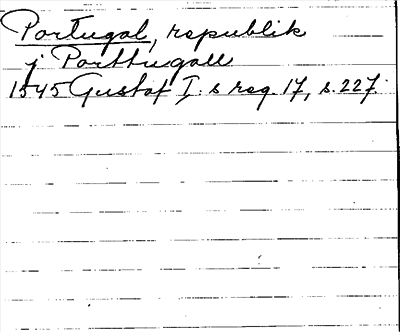 Portugal, republik
j Portthugall
1545 Gustaf I:s reg. 17, s. 227.